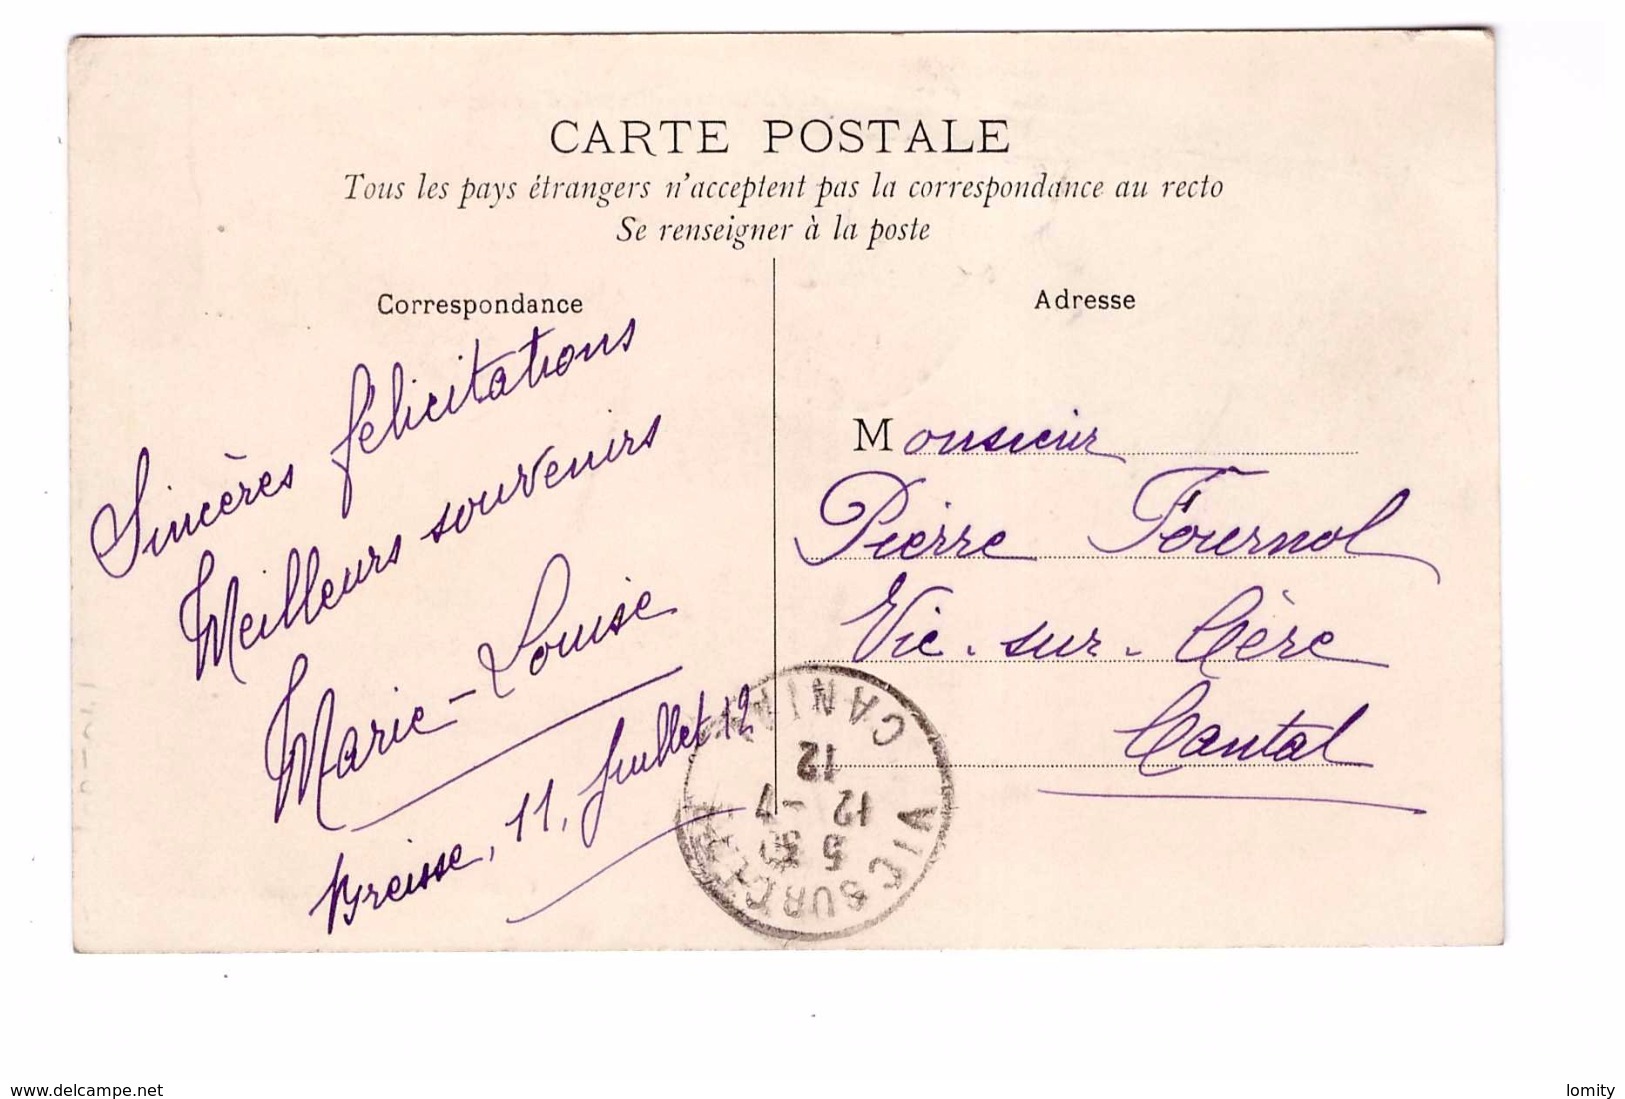 CARTE POSTALE
Tous les pays étrangers n'acceptent pas la correspondance au recto
Se renseigner à la poste
Correspondance
Sincères félicitations
Meilleurs souvenirs
Marie-Louise
11, Juillet 12
Adresse
Monsieur
Pierre Fournol
Vic-sur-Cère
Cantal
VIC SUR CERE
5
12 - 7
12
www.delcampe.net
lomity